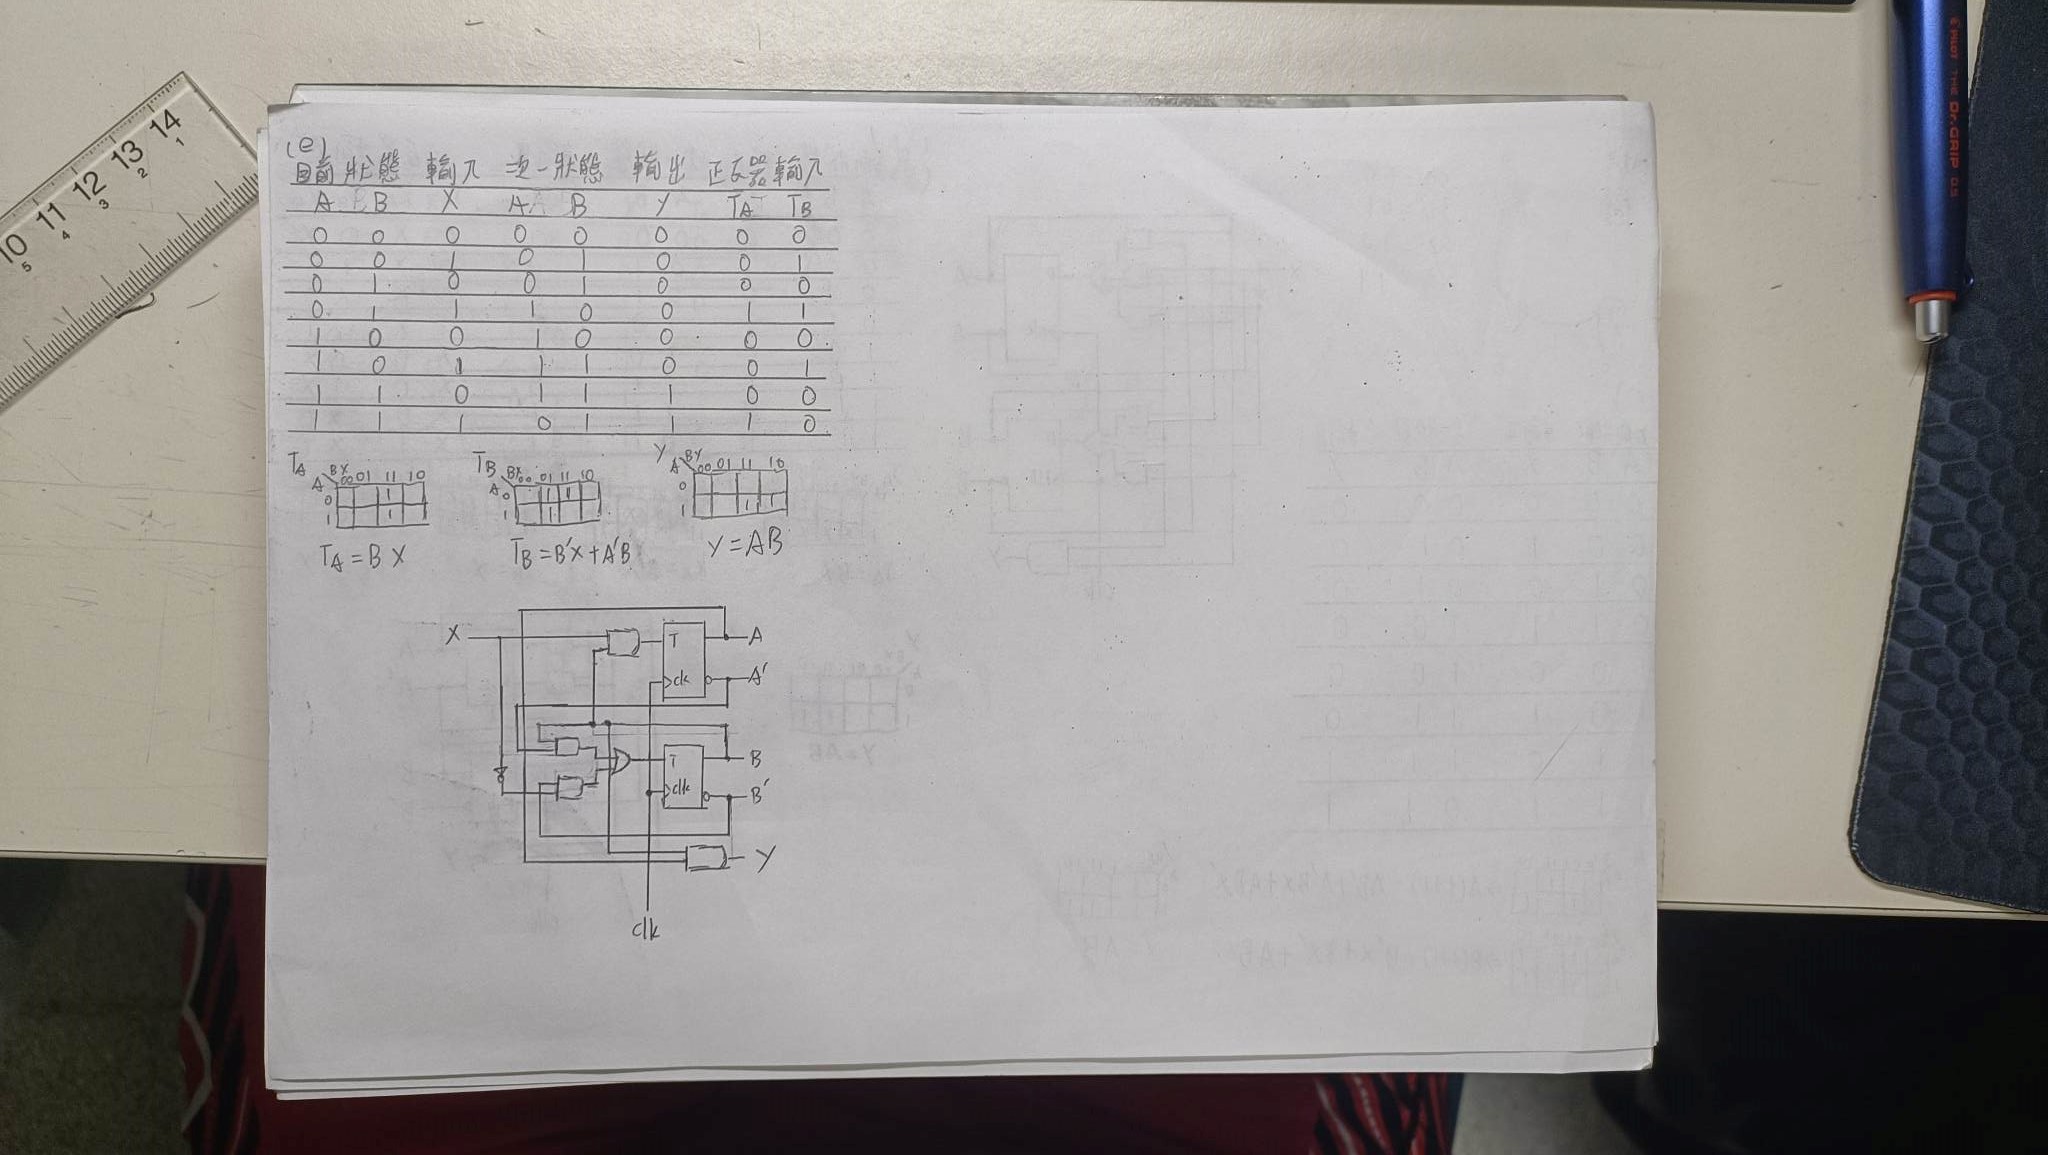 (e)
目前狀態 輸入 次一狀態 輸出 正反器輸入
A B X A B Y TA TB
0 0 0 0 0 0 0 0
0 0 1 0 1 0 0 1
0 1 0 0 1 0 0 0
0 1 1 1 0 0 1 1
1 0 0 1 0 0 0 0
1 0 1 1 1 0 0 1
1 1 0 1 1 1 0 0
1 1 1 0 1 1 1 0
TA TB Y
A BX 00 01 11 10 A BX 00 01 11 10 A BX 00 01 11 10
0 1 0 1 1 0
1 1 1 1 1 1 1
TA = BX TB = B'X + A'B Y = AB
X T A
clk A'
T B
clk B'
Y
clk
10 11 12 13 14
5 4 3 2 1
PILOT THE Dr.GRIP 0.5